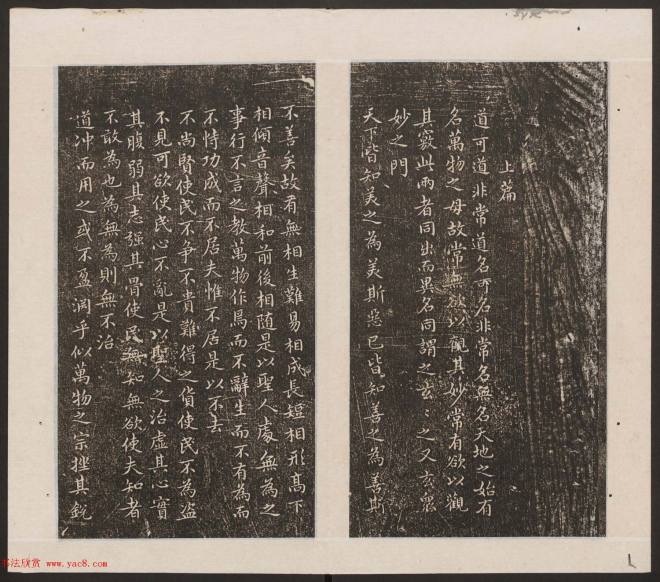 上篇
道可道非常道名可名非常名無名天地之始有
名萬物之母故常無欲以觀其妙常有欲以觀
其竅此兩者同出而異名同謂之玄〻之又玄衆
妙之門
天下皆知美之為美斯惡已皆知善之為善斯
不善矣故有無相生難易相成長短相形高下
相傾音聲相和前後相隨是以聖人處無為之
事行不言之教萬物作焉而不辭生而不有為而
不恃功成而不居夫惟不居是以不去
不尚賢使民不爭不貴難得之貨使民不為盜
不見可欲使民心不亂是以聖人之治虛其心實
其腹弱其志強其骨使民無知無欲使夫知者
不敢為也為無為則無不治
道沖而用之或不盈淵乎似萬物之宗挫其銳
书法欣赏 www.yac8.com